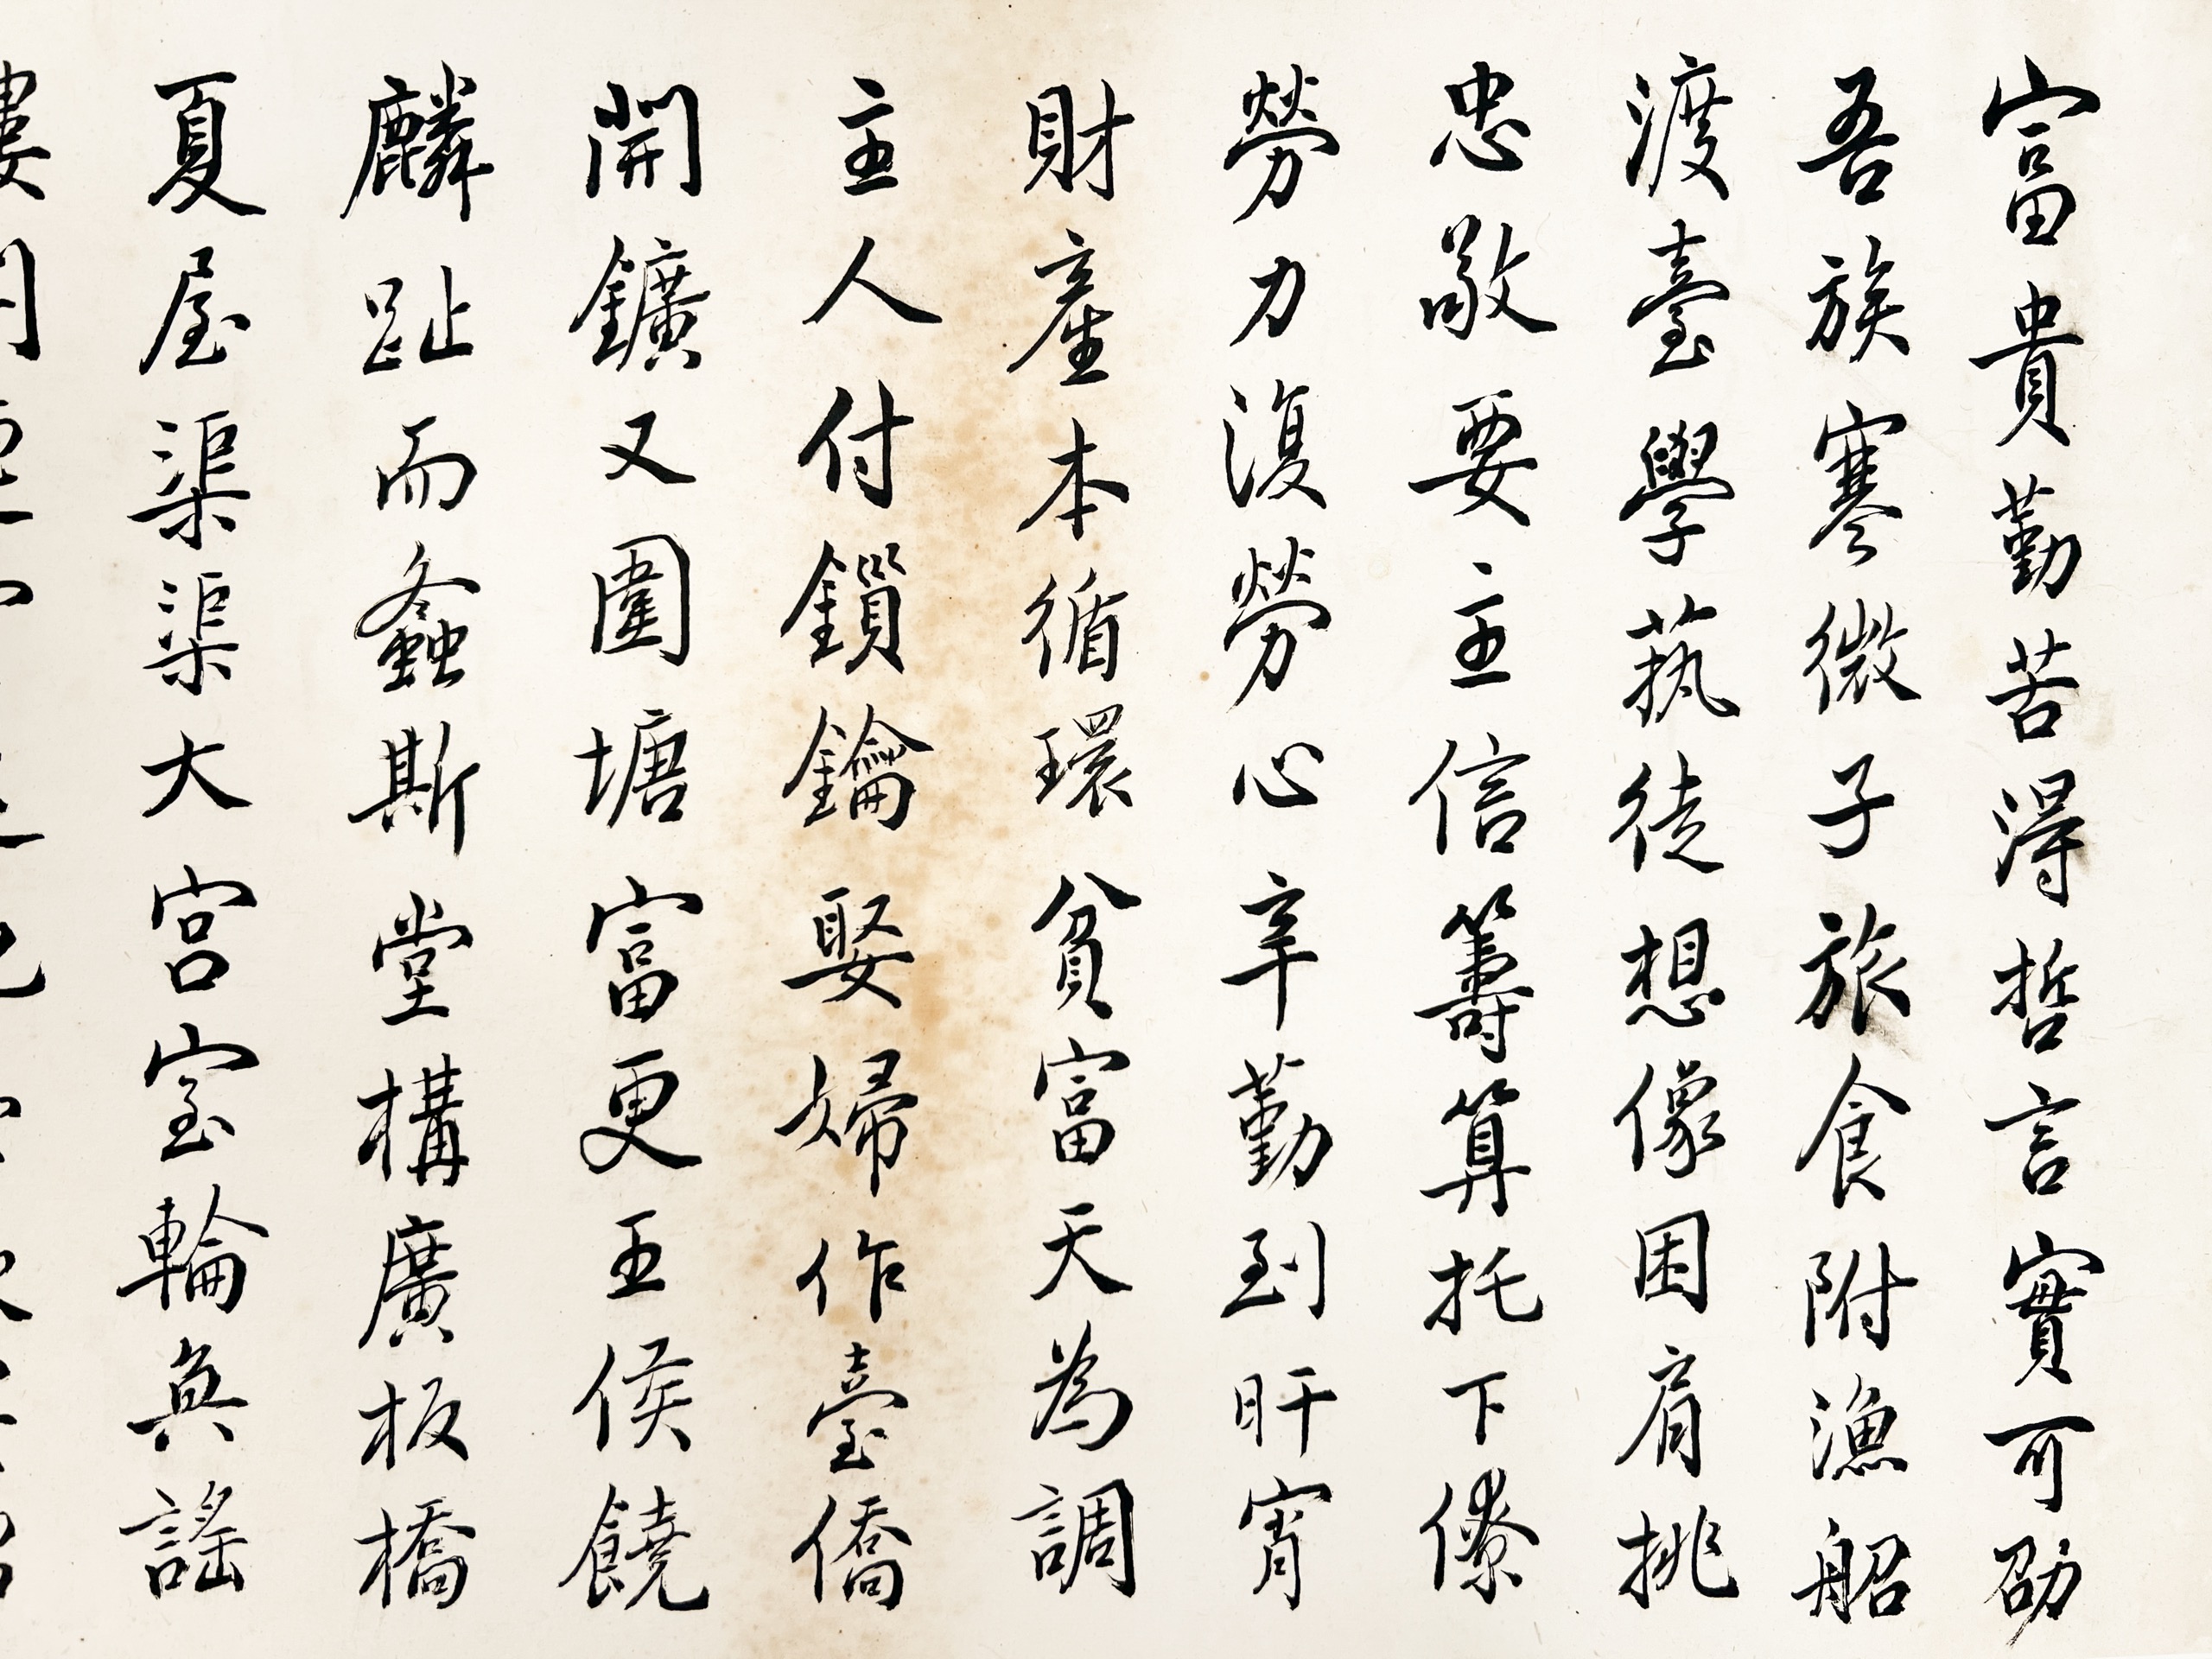 富貴勤苦得哲言實可劭
吾族寒微子旅食附漁船
渡臺學藝徒想像困肩挑
忠敬要主信籌算托下僚
勞力復勞心辛勤到旰宵
財產本循環貧富天為調
主人付鎖鑰娶婦作臺僑
開鑛又圍塘富更王侯饒
麟趾而螽斯堂構廣板橋
夏屋渠渠大宮室輪奐謠